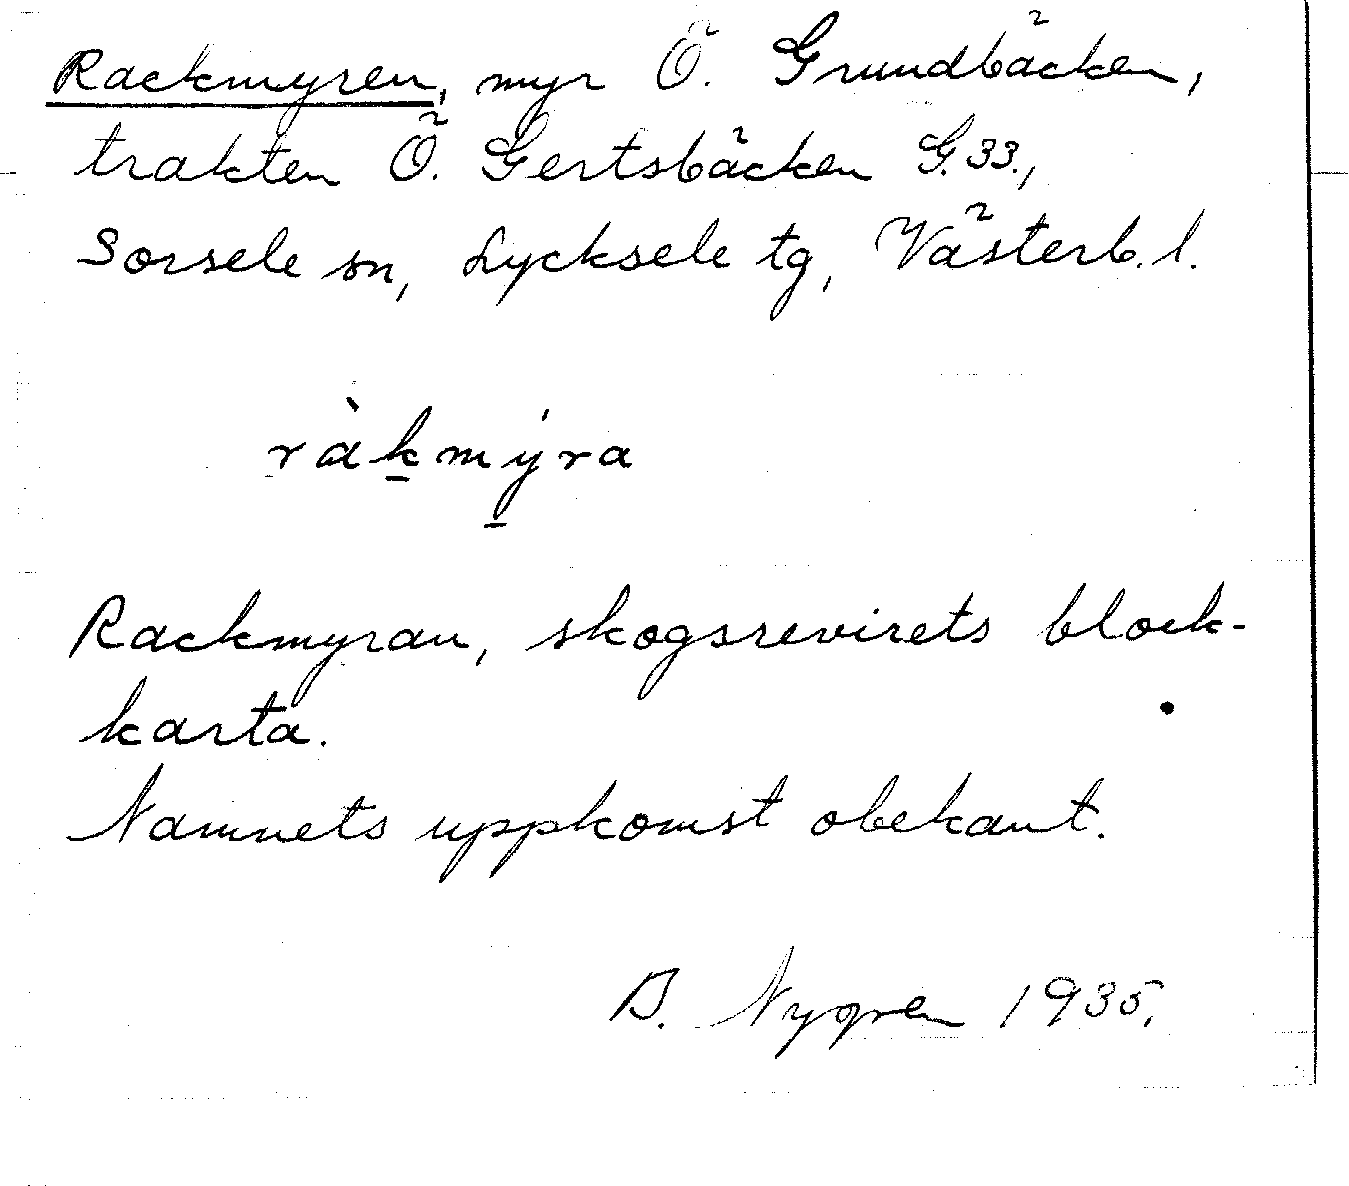 Rackmyren, myr Ö. Grundbäcken,
trakten Ö. Gertsbäcken G.33.,
Sorsele sn, Lycksele tg, Västerb. l.
ràkmýra
Rackmyran, skogsrevirets block-
karta.
Namnets uppkomst obekant.
B. Nygren 1935.